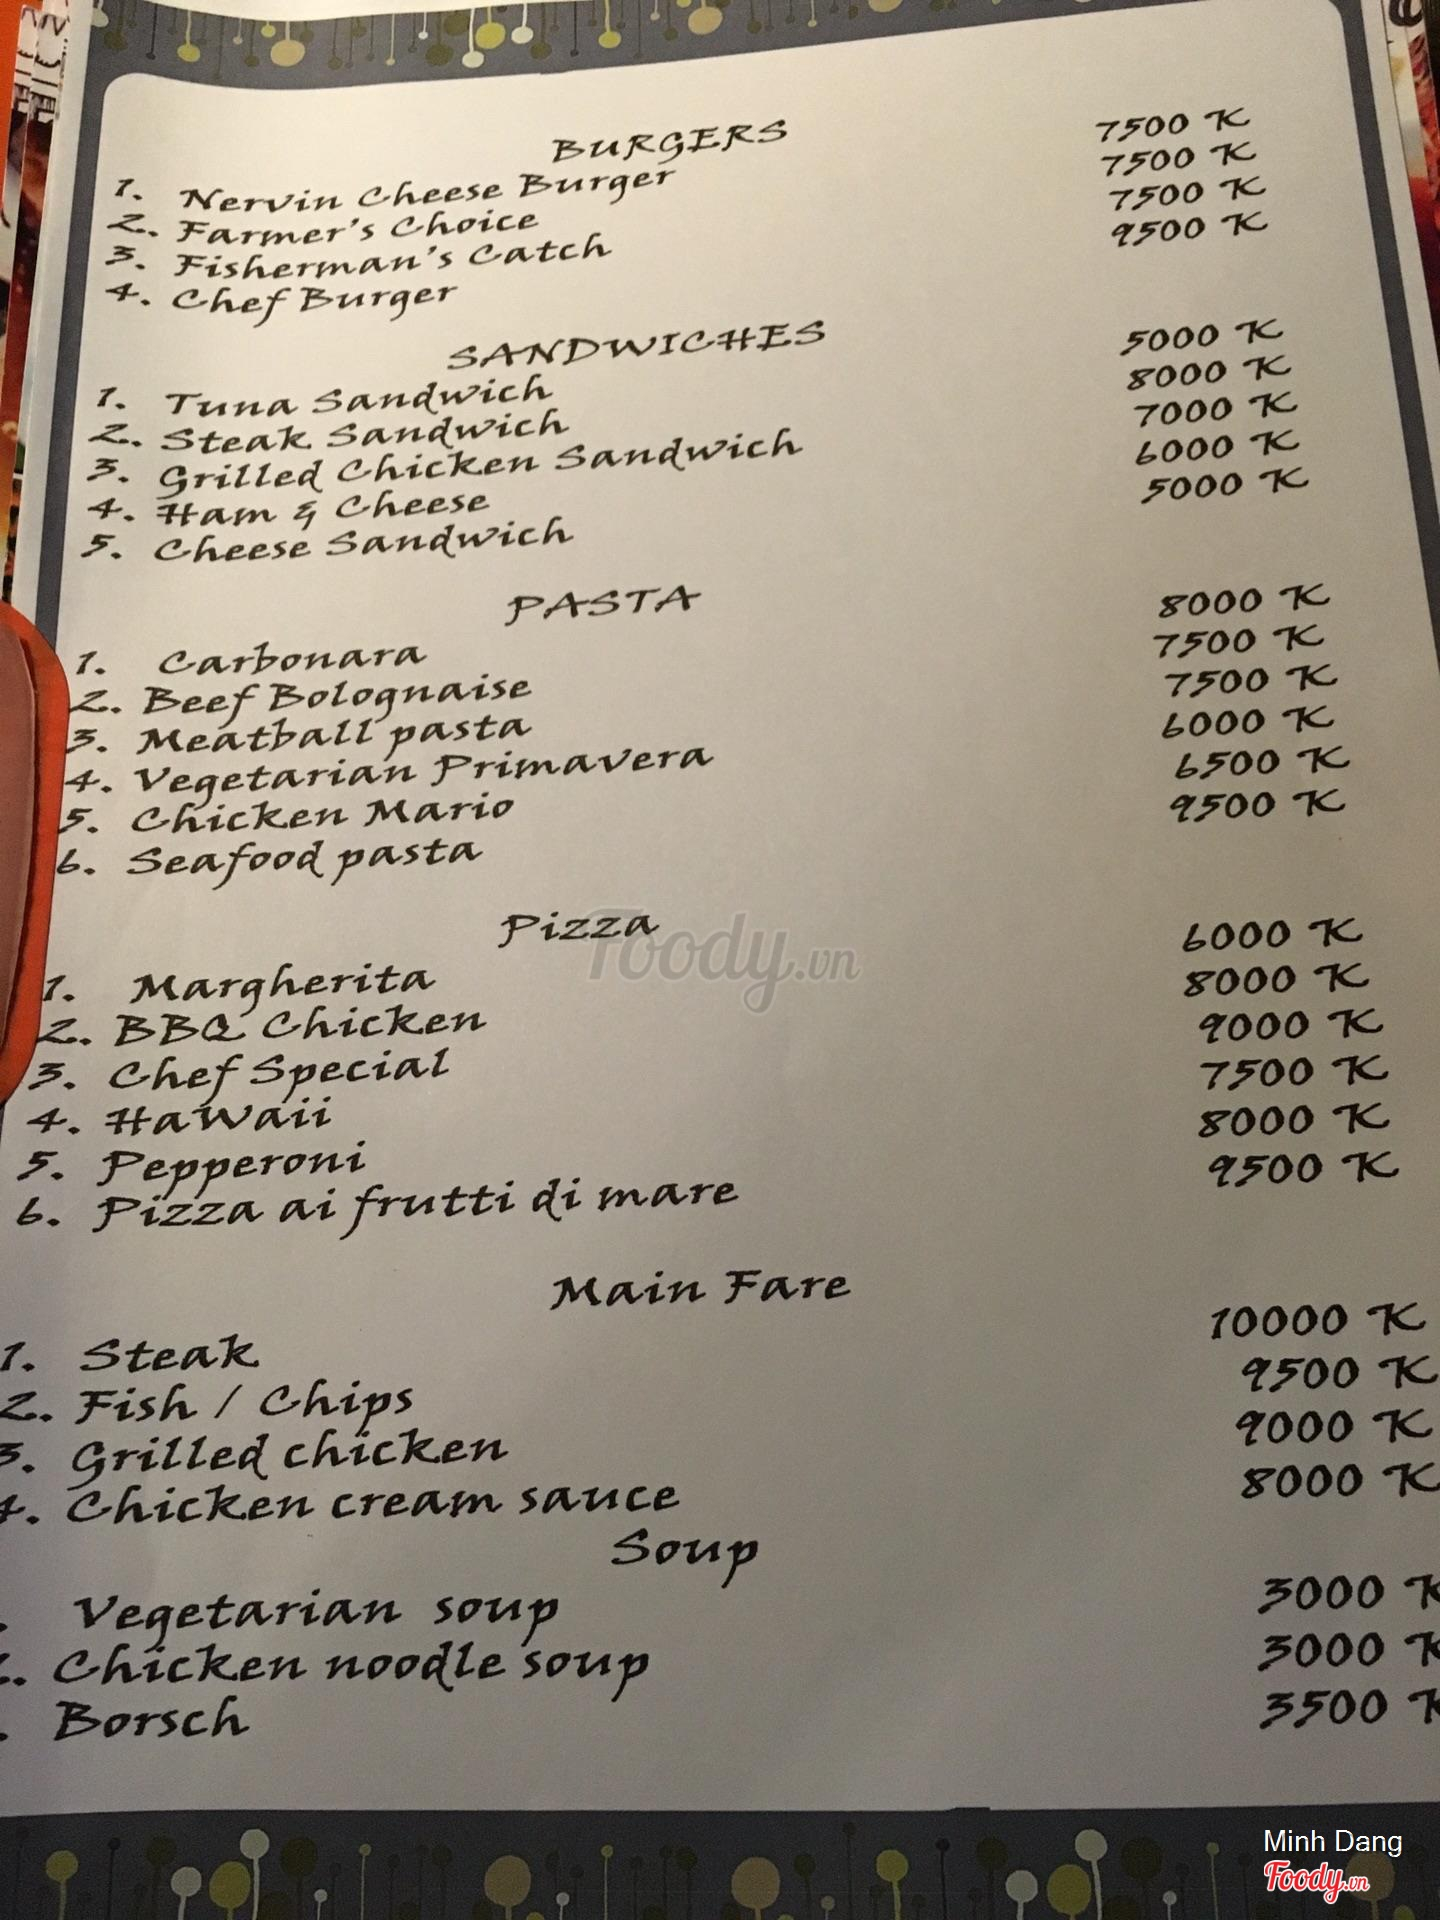 BURGERS
1. Nervin Cheese Burger 7500 K
2. Farmer's Choice 7500 K
3. Fisherman's Catch 7500 K
4. Chef Burger 9500 K
SANDWICHES
1. Tuna Sandwich 5000 K
2. Steak Sandwich 8000 K
3. Grilled Chicken Sandwich 7000 K
4. Ham & Cheese 6000 K
5. Cheese Sandwich 5000 K
PASTA
1. Carbonara 8000 K
2. Beef Bolognaise 7500 K
3. Meatball pasta 7500 K
4. Vegetarian Primavera 6000 K
5. Chicken Mario 6500 K
6. Seafood pasta 9500 K
Pizza
Foody.vn
1. Margherita 6000 K
2. BBQ Chicken 8000 K
3. Chef Special 9000 K
4. HaWaii 7500 K
5. Pepperoni 8000 K
6. Pizza ai frutti di mare 9500 K
Main Fare
1. Steak 10000 K
2. Fish / Chips 9500 K
3. Grilled chicken 9000 K
4. Chicken cream sauce 8000 K
Soup
Vegetarian soup 3000 K
Chicken noodle soup 3000 K
Borsch 3500 K
Minh Dang
Foody.vn